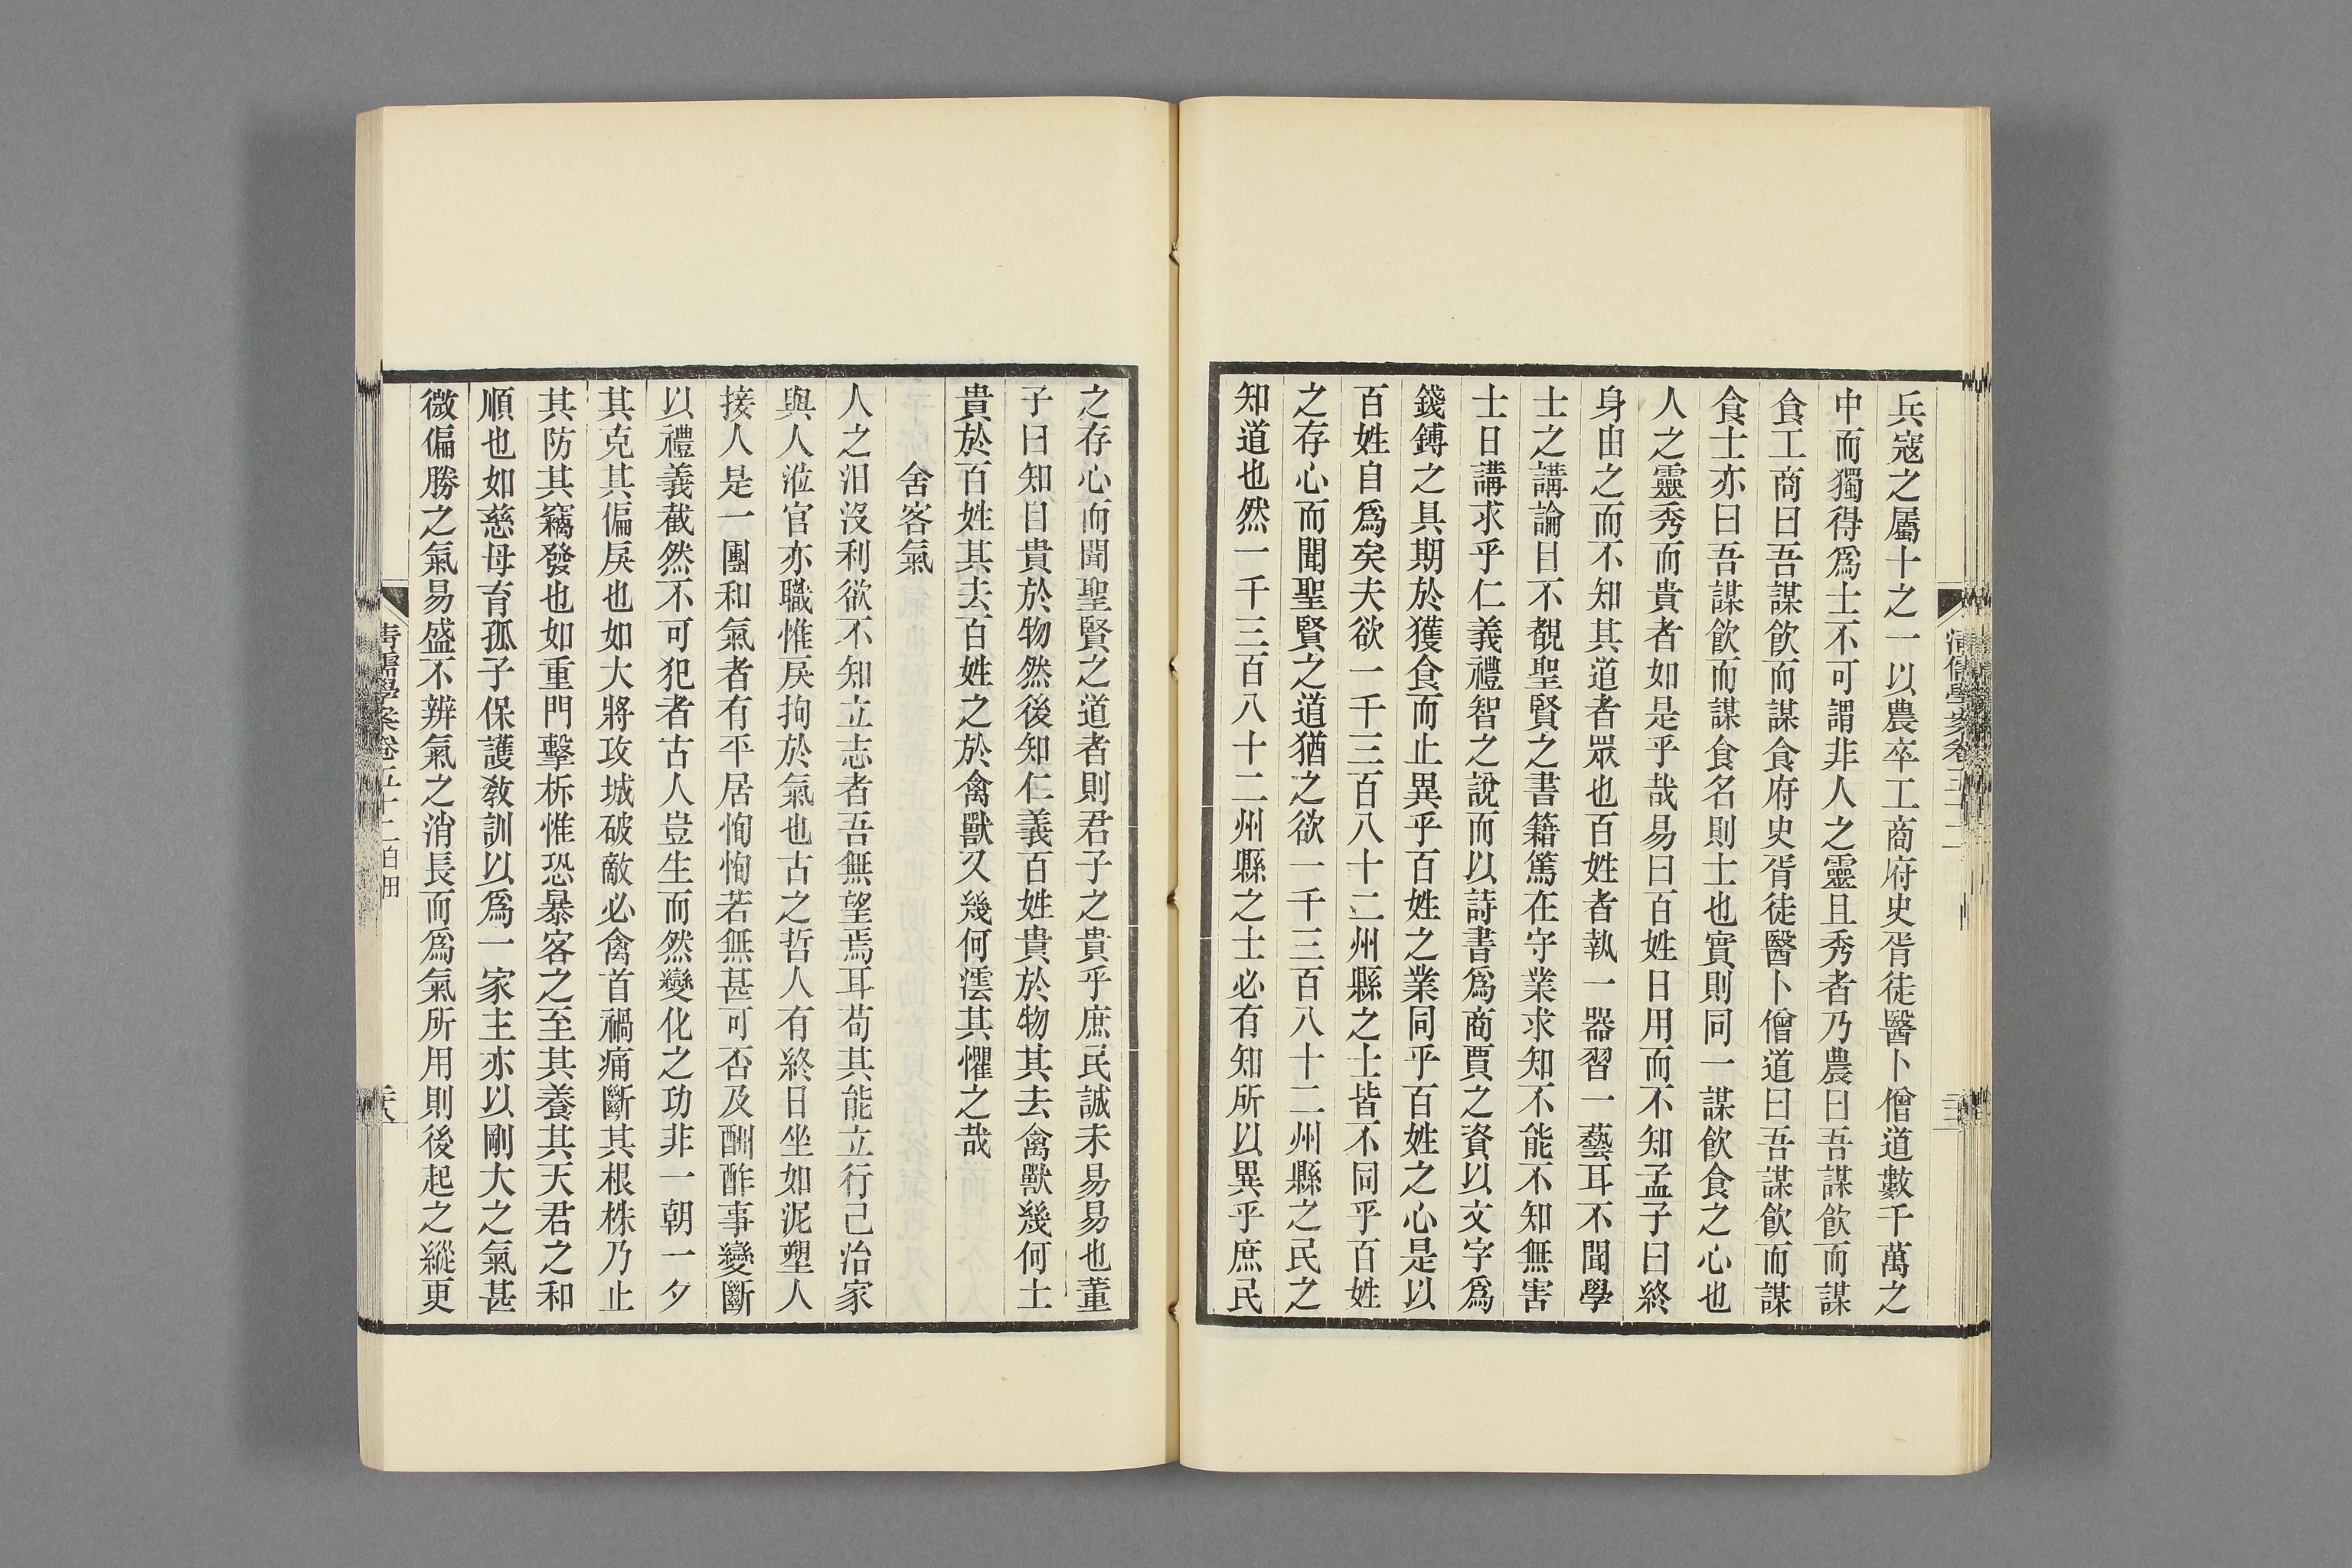 兵寇之屬十之一以農卒工商府史胥徒醫卜僧道數千萬之
中而獨得爲士不可謂非人之靈且秀者乃農曰吾謀飲而謀
食工商曰吾謀飲而謀食府史胥徒醫卜僧道曰吾謀飲而謀
食士亦曰吾謀飲而謀食名則士也實則同一謀飲食之心也
人之靈秀而貴者如是乎哉易曰百姓日用而不知孟子曰終
身由之而不知其道者眾也百姓者執一器習一藝耳不聞學
士之講論目不覩聖賢之書籍篤在守業求知不能不知無害
士日講求乎仁義禮智之說而以詩書爲商賈之資以文字爲
錢鎛之具期於獲食而止異乎百姓之業同乎百姓之心是以
百姓自爲矣夫欲一千三百八十二州縣之士皆不同乎百姓
之存心而聞聖賢之道猶之欲一千三百八十二州縣之民之
知道也然一千三百八十二州縣之士必有知所以異乎庶民
之存心而聞聖賢之道者則君子之貴乎庶民誠未易易也董
子曰知自貴於物然後知仁義百姓貴於物其去禽獸幾何士
貴於百姓其去百姓之於禽獸又幾何澐其懼之哉
舍客氣
人之汨沒利欲不知立志者吾無望焉耳苟其能立行己治家
與人涖官亦職惟戾拘於氣也古之哲人有終日坐如泥塑人
接人是一團和氣者有平居恂恂若無甚可否及酬酢事變斷
以禮義截然不可犯者古人豈生而然變化之功非一朝一夕
其克其偏戾也如大將攻城破敵必禽首禍痛斷其根株乃止
其防其竊發也如重門擊柝惟恐暴客之至其養其天君之和
順也如慈母育孤子保護敎訓以爲一家主亦以剛大之氣甚
微偏勝之氣易盛不辨氣之消長而爲氣所用則後起之縱更
清儒學案卷五十二白田